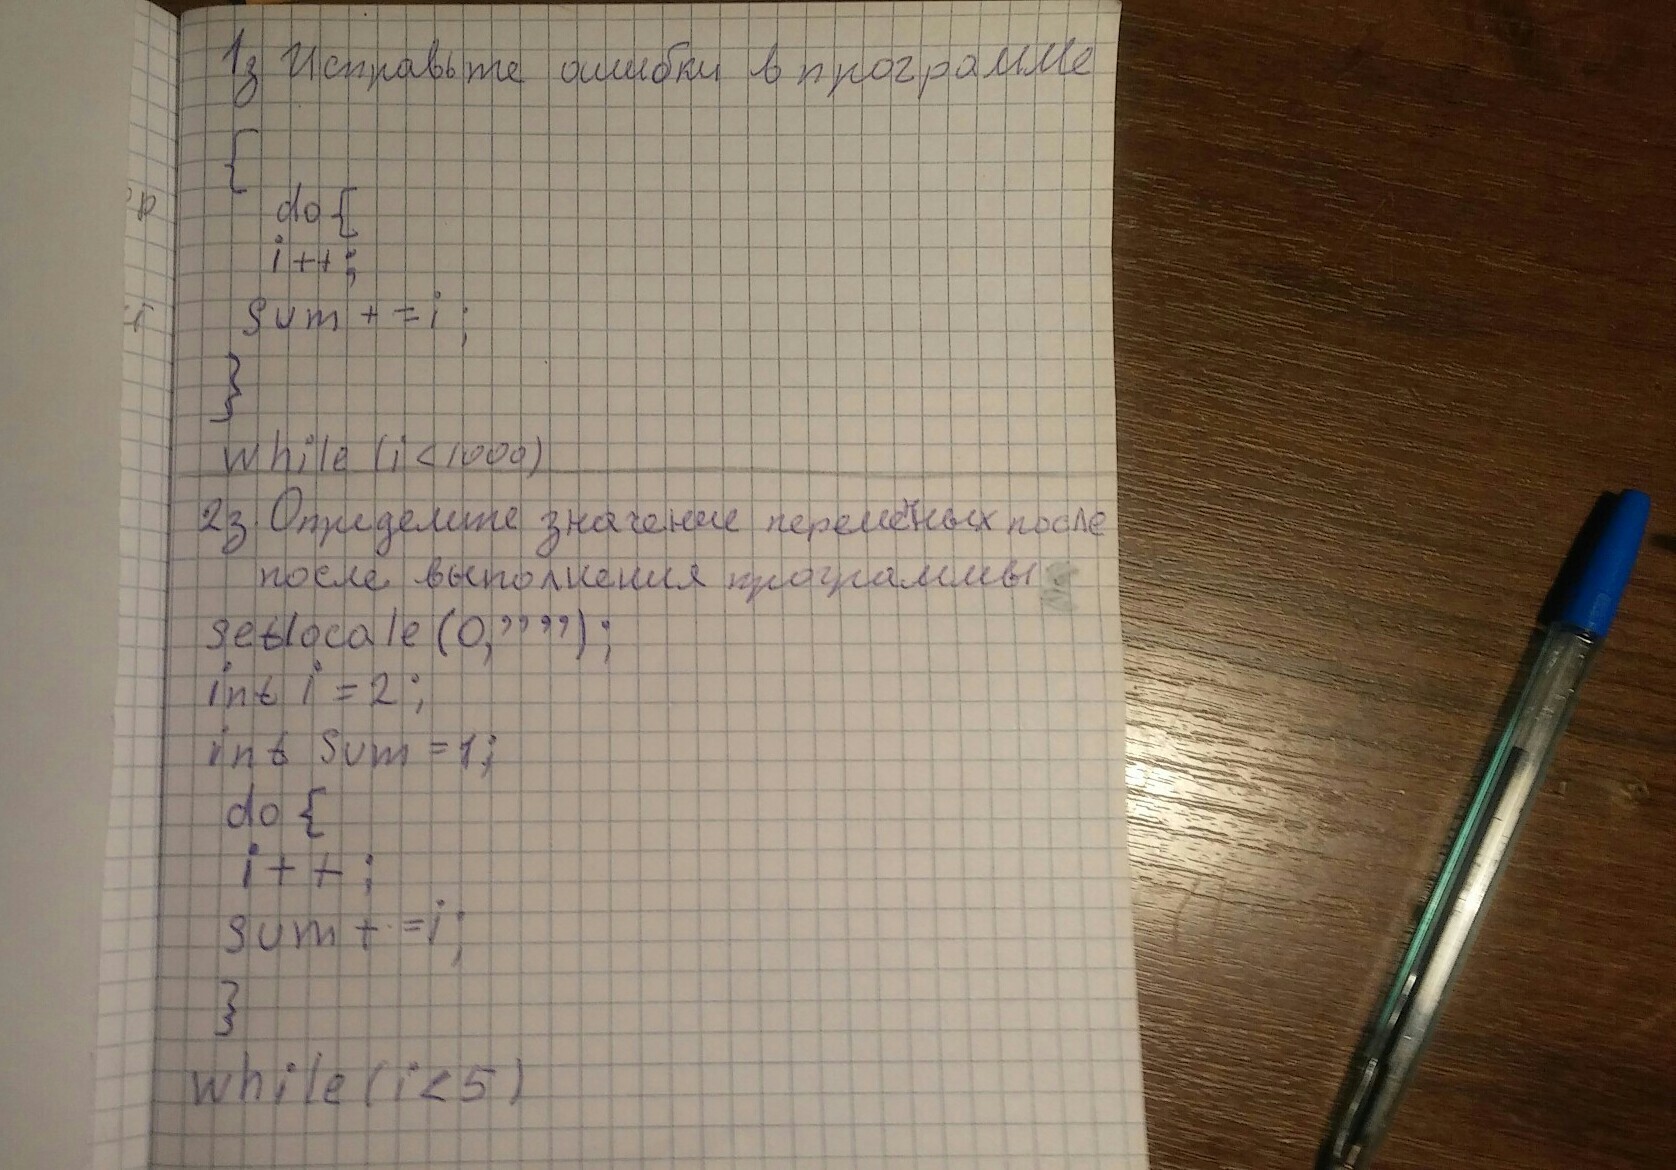 1з Исправьте ошибки в программе
{
do{
i++;
sum +=i;
}
while (i<1000)
2з Определите значение переменых после
после выполнения программы
setlocale(0,"");
int i=2;
int sum=1;
do {
i++;
sum +=i;
}
while (i<5)